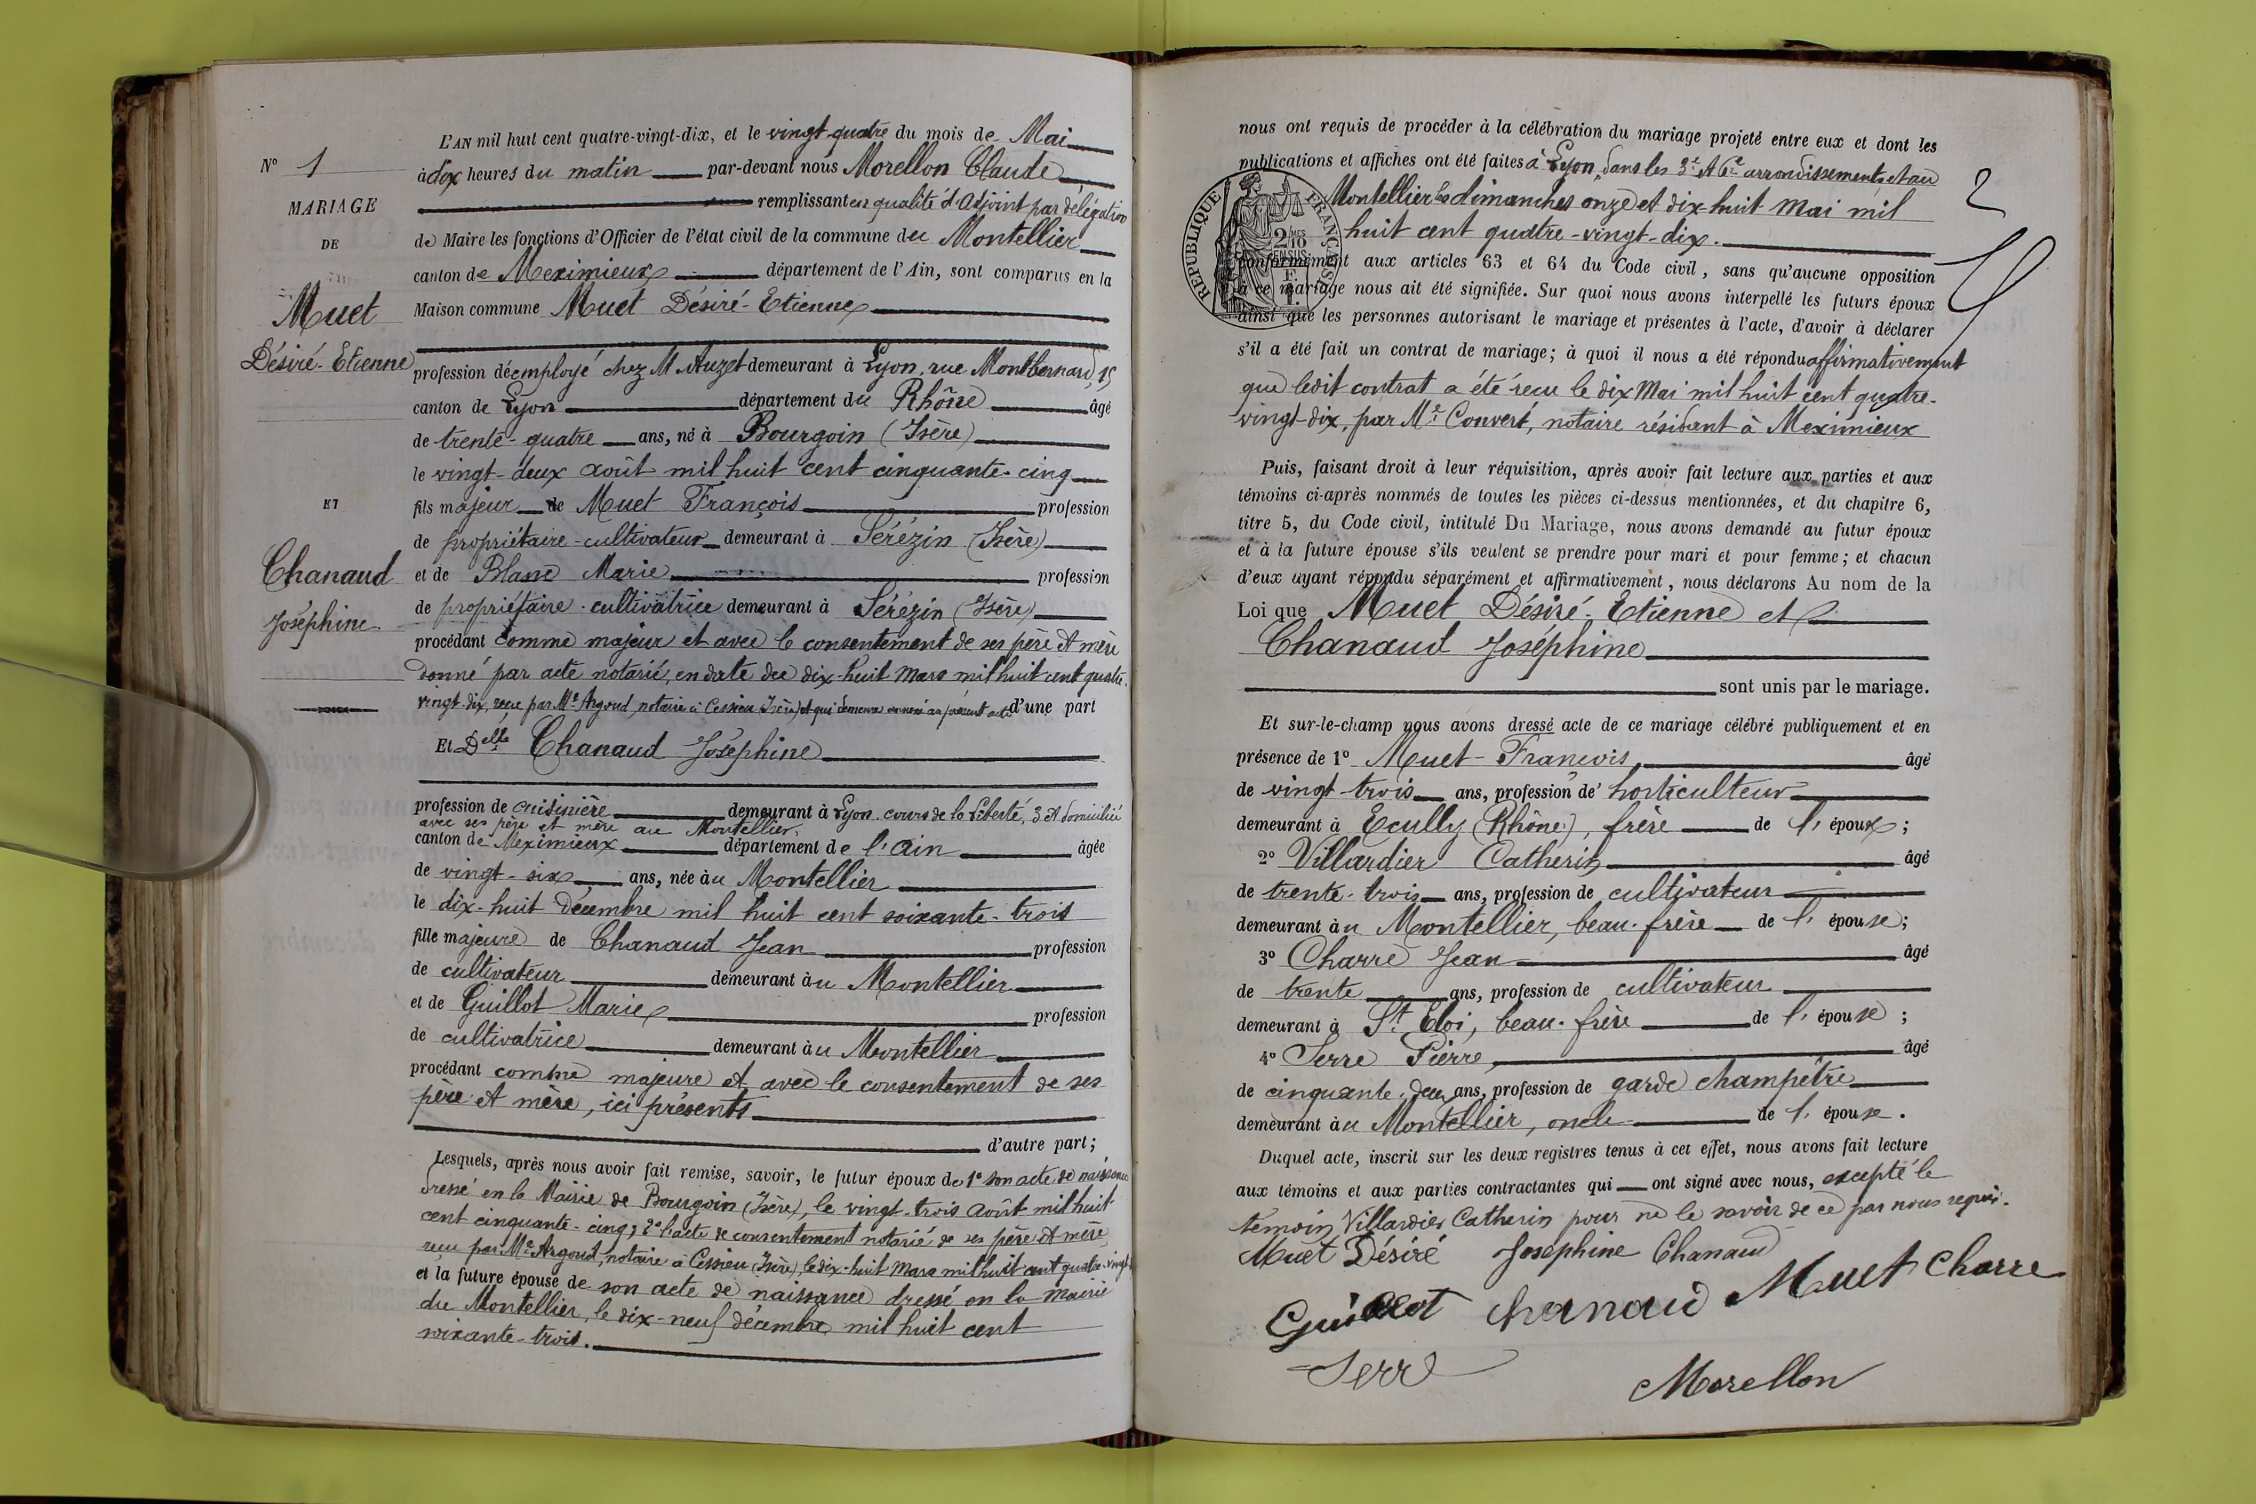 N° 1
MARIAGE
DE
Muet
Désiré-Etienne
ET
Chanaud
Joséphine
L'AN mil huit cent quatre-vingt-dix, et le vingt-quatre du mois de Mai
à dix heures du matin par-devant nous Morellon Claude
remplissant en qualité d'Adjoint par délégation
de Maire les fonctions d'Officier de l'état civil de la commune du Montellier
canton de Meximieux département de l'Ain, sont comparus en la
Maison commune Muet Désiré-Etienne
profession d'employé chez M. Auzet demeurant à Lyon, rue Montbernard, 15
canton de Lyon département du Rhône âgé
de trente-quatre ans, né à Bourgoin (Isère)
le vingt-deux août mil huit cent cinquante-cinq
fils majeur de Muet François profession
de propriétaire-cultivateur demeurant à Sérézin (Isère)
et de Blanc Marie profession
de propriétaire-cultivatrice demeurant à Sérézin (Isère)
procédant comme majeur et avec le consentement de ses père et mère
donné par acte notarié, en date du dix-huit mars mil huit cent quatre-
vingt-dix, reçu par Me Argoud, notaire à Cessieu (Isère) et qui demeure annexé au présent acte d'une part
Et Delle Chanaud Joséphine
profession de cuisinière demeurant à Lyon, cours de la Liberté, 3 et domiciliée
avec ses père et mère au Montellier.
canton de Meximieux département de l'Ain âgée
de vingt-six ans, née au Montellier
le dix-huit décembre mil huit cent soixante-trois
fille majeure de Chanaud Jean profession
de cultivateur demeurant au Montellier
et de Guillot Marie profession
de cultivatrice demeurant au Montellier
procédant comme majeure et avec le consentement de ses
père et mère, ici présents
d'autre part;
Lesquels, après nous avoir fait remise, savoir, le futur époux de 1° son acte de naissance
dressé en la Mairie de Bourgoin (Isère), le vingt-trois août mil huit
cent cinquante-cinq; 2° l'acte de consentement notarié de ses père et mère
reçu par Me Argoud, notaire à Cessieu (Isère), le dix-huit mars mil huit cent quatre-vingt-
et la future épouse de son acte de naissance dressé en la mairie
du Montellier, le dix-neuf décembre mil huit cent
soixante-trois.
2
nous ont requis de procéder à la célébration du mariage projeté entre eux et dont les
publications et affiches ont été faites à Lyon, dans les 3e et 6e arrondissements et au
Montellier les dimanches onze et dix-huit mai mil
huit cent quatre-vingt-dix.
RÉPUBLIQUE FRANÇAISE
2/10 EN SUS
conformément aux articles 63 et 64 du Code civil, sans qu'aucune opposition
à ce mariage nous ait été signifiée. Sur quoi nous avons interpellé les futurs époux
ainsi que les personnes autorisant le mariage et présentes à l'acte, d'avoir à déclarer
s'il a été fait un contrat de mariage; à quoi il nous a été répondu affirmativement
que ledit contrat a été reçu le dix mai mil huit cent quatre-
vingt-dix, par Me Convert, notaire résidant à Meximieux
Puis, faisant droit à leur réquisition, après avoir fait lecture aux parties et aux
témoins ci-après nommés de toutes les pièces ci-dessus mentionnées, et du chapitre 6,
titre 5, du Code civil, intitulé Du Mariage, nous avons demandé au futur époux
et à la future épouse s'ils veulent se prendre pour mari et pour femme; et chacun
d'eux ayant répondu séparément et affirmativement, nous déclarons Au nom de la
Loi que Muet Désiré-Etienne et
Chanaud Joséphine
sont unis par le mariage.
Et sur-le-champ nous avons dressé acte de ce mariage célébré publiquement et en
présence de 1° Muet François, âgé
de vingt-trois ans, profession d'horticulteur
demeurant à Ecully (Rhône), frère de l'époux;
2° Villardier Catherin âgé
de trente-trois ans, profession de cultivateur
demeurant au Montellier, beau-frère de l'épouse;
3° Charre Jean âgé
de trente ans, profession de cultivateur
demeurant à St Eloi, beau-frère de l'épouse;
4° Serre Pierre, âgé
de cinquante-deux ans, profession de garde champêtre
demeurant au Montellier, oncle de l'épouse.
Duquel acte, inscrit sur les deux registres tenus à cet effet, nous avons fait lecture
aux témoins et aux parties contractantes qui ont signé avec nous, excepté le
témoin Villardier Catherin pour ne le savoir de ce par nous requis.
Muet Désiré Josephine Chanaud
Guillot chanaud Muet Charre
Serre
Morellon